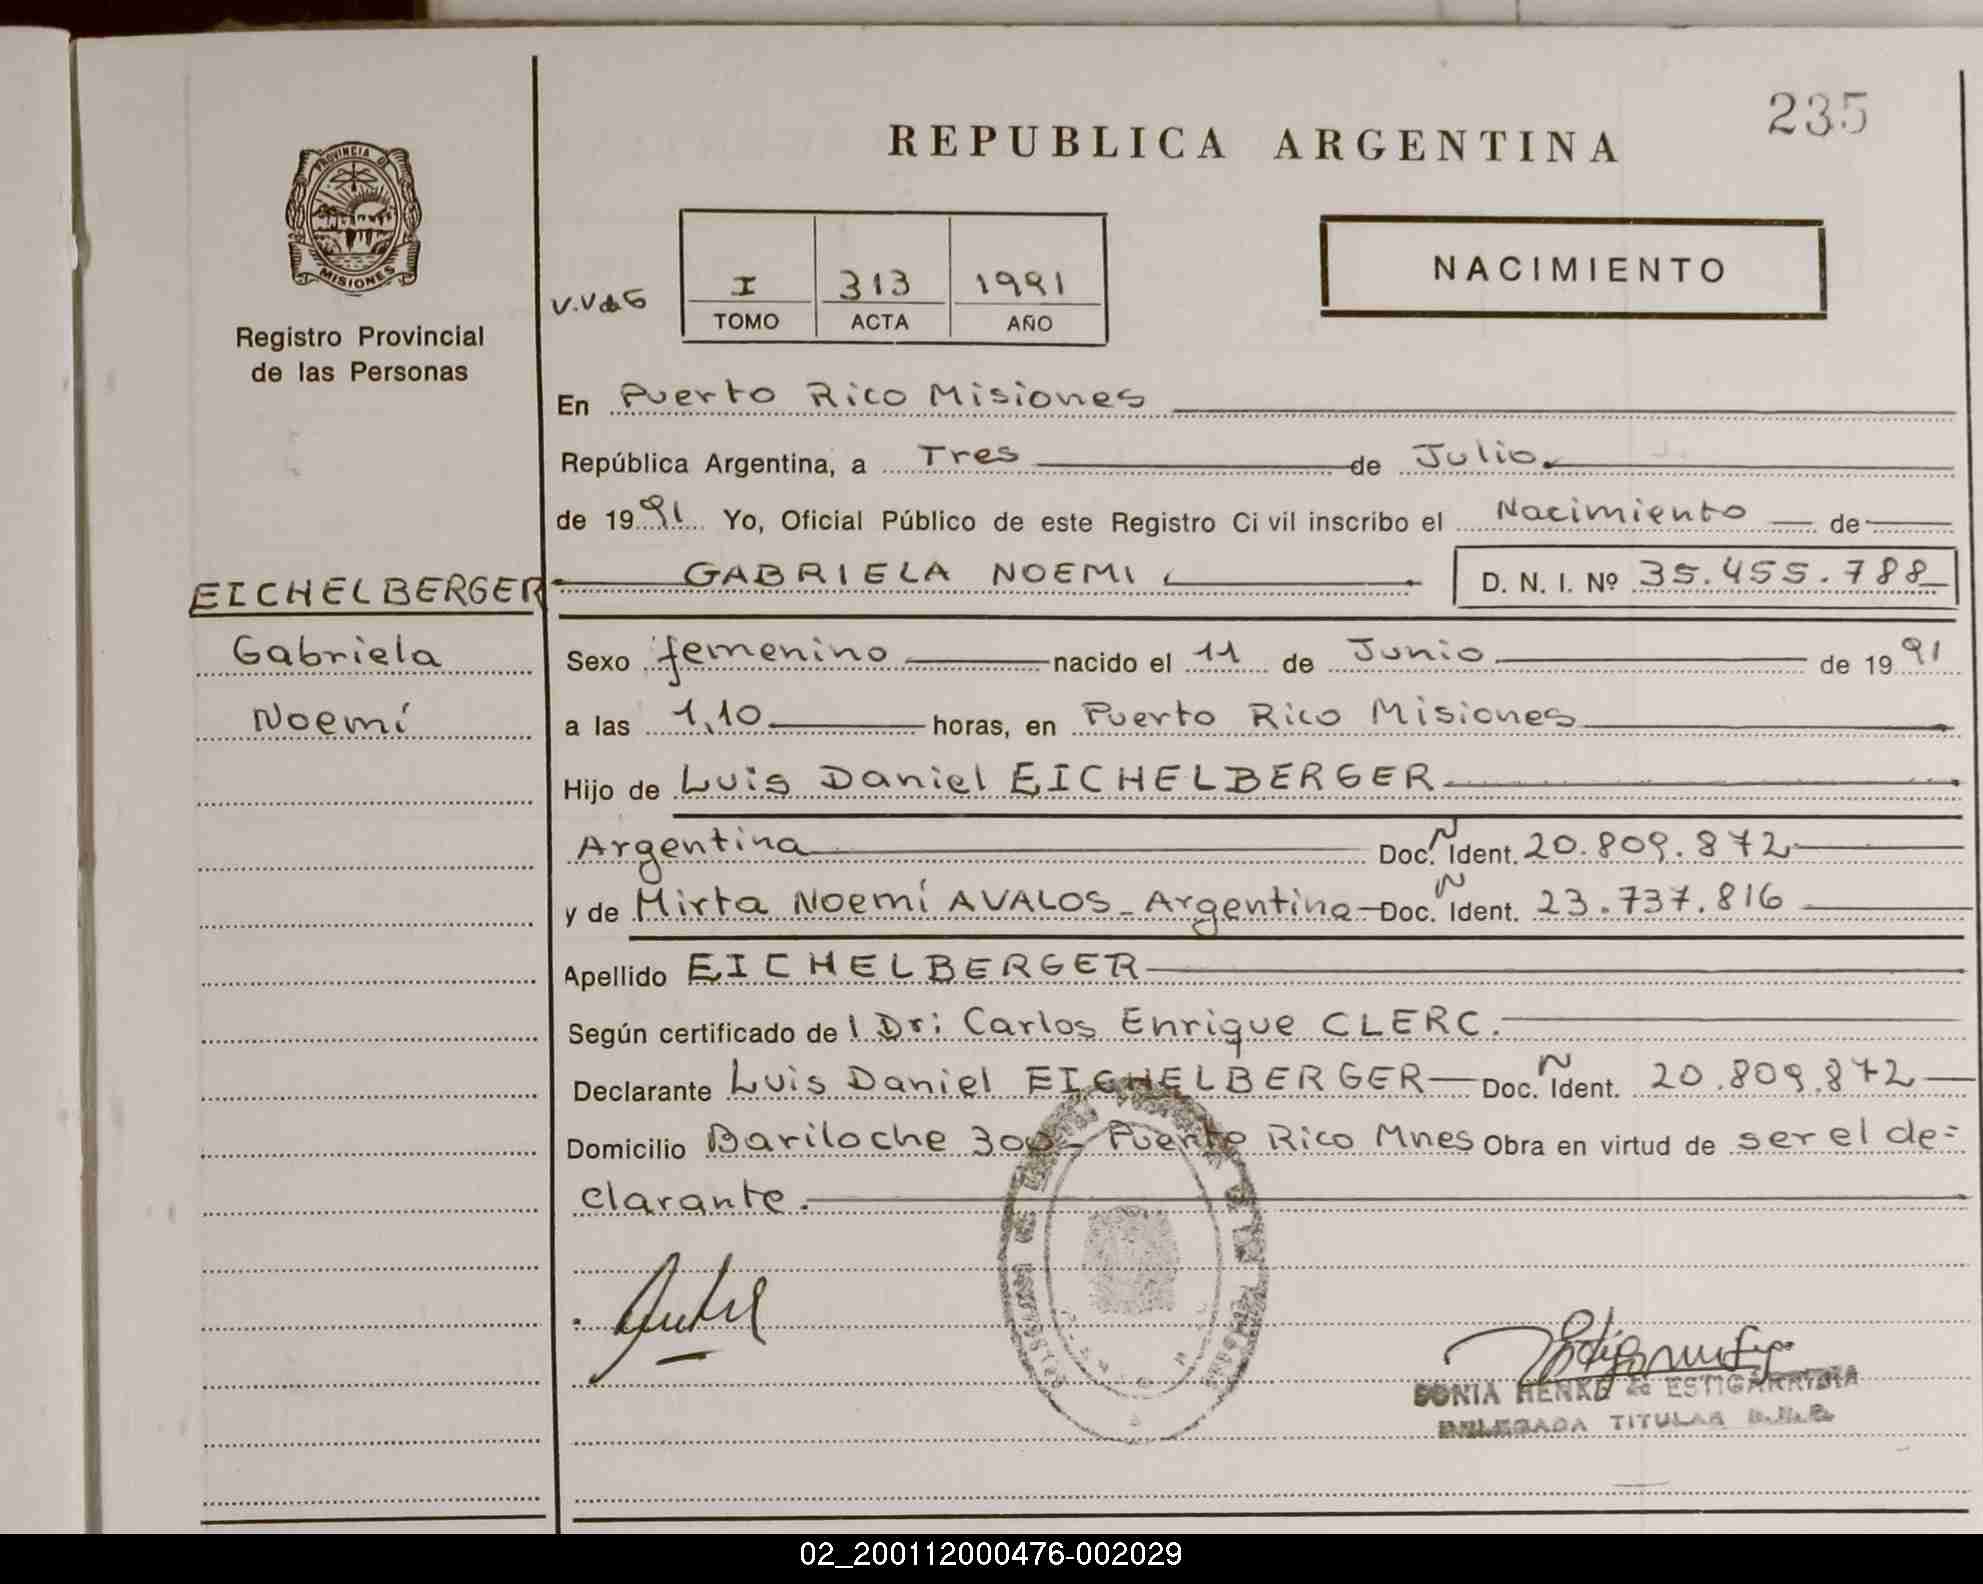 235
REPUBLICA ARGENTINA
PROVINCIA DE
MISIONES
Registro Provincial
de las Personas
V.V de G
I 313 1991
TOMO ACTA AÑO
NACIMIENTO
En Puerto Rico Misiones
República Argentina, a Tres de Julio
de 1991 Yo, Oficial Público de este Registro Ci vil inscribo el Nacimiento de
EICHELBERGER GABRIELA NOEMI D. N. I. Nº 35.455.788
Gabriela
Noemí
Sexo femenino nacido el 11 de Junio de 1991
a las 1,10 horas, en Puerto Rico Misiones
Hijo de Luis Daniel EICHELBERGER
Argentina Doc. N Ident. 20.809.872
y de Mirta Noemí AVALOS - Argentina Doc. N Ident. 23.737.816
Apellido EICHELBERGER
Según certificado de l Dr: Carlos Enrique CLERC.
Declarante Luis Daniel EICHELBERGER Doc. N Ident. 20.809.872
Domicilio Bariloche 300 - Puerto Rico Mnes Obra en virtud de ser el de=
clarante.
SONIA HENKE de ESTIGARRIBIA
DELEGADA TITULAR
02_200112000476-002029